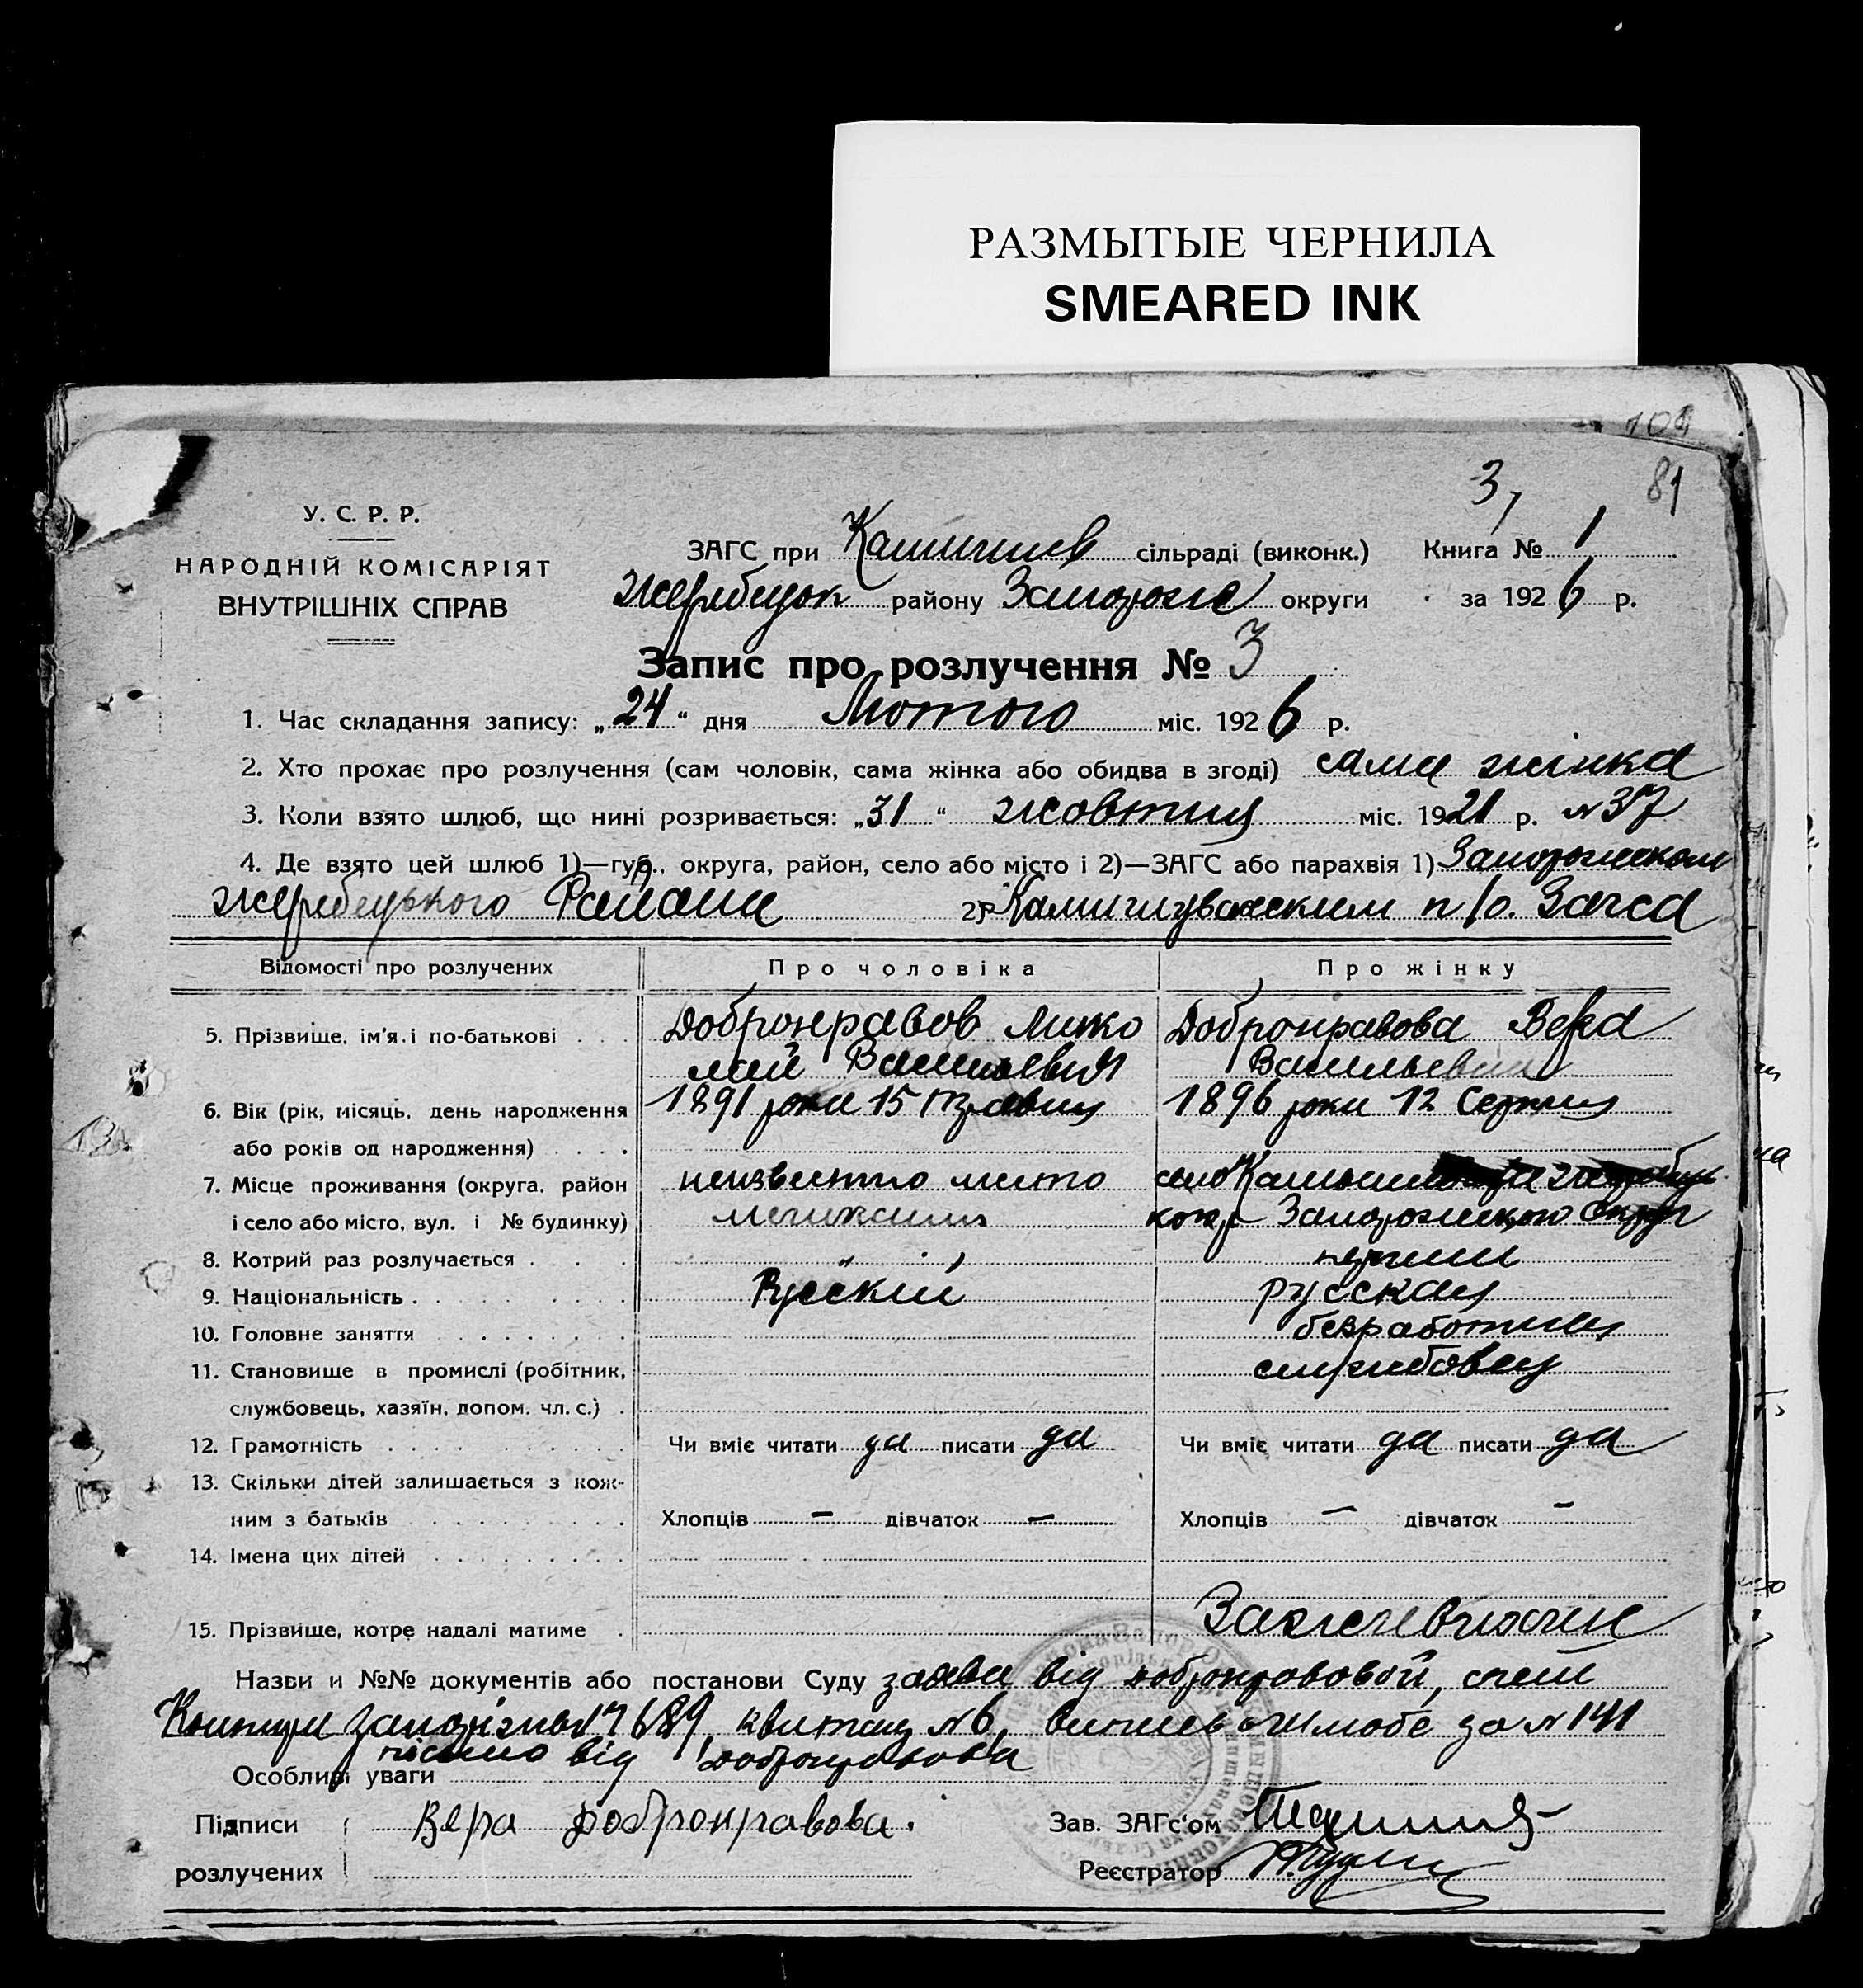 РАЗМЫТЫЕ ЧЕРНИЛА
SMEARED INK
81
3,
У. С. Р. Р.
НАРОДНІЙ КОМІСАРІЯТ
ВНУТРІШНІХ СПРАВ
ЗАГС при сільраді (виконк.) Книга № 1
району Запорож округи за 1926 р.
Запис про розлучення № 3
1. Час складання запису: „24“ дня Лютого міс. 1926 р.
2. Хто прохає про розлучення (сам чоловік, сама жінка або обидва в згоді) сама жінка
3. Коли взято шлюб, що нині розривається: „31“ жовтня міс. 1921 р. № 37
4. Де взято цей шлюб 1)—губ., округа, район, село або місто і 2)—ЗАГС або парахвія 1)
жеребецького Района 2) п/о. Загса
Відомості про розлучених Про чоловіка Про жінку
5. Прізвище, ім'я і по-батькові . . . Добронравов Мико Добронравова Вера
лай Васильевич Васильевна
6. Вік (рік, місяць, день народження 1891 роки 15 1896 роки 12 Серпня
або років од народження) . . . .
7. Місце проживання (округа, район неизвестно место село
і село або місто, вул. і № будинку) Запорожицкого Округ
8. Котрий раз розлучається . . . „
9. Національність . . . . . . . Русский русская
10. Головне заняття . . . . . . . . безработная
11. Становище в промислі (робітник, службовец
службовець, хазяїн, допом. чл. с.) .
12. Грамотність . . . . . . . . . . Чи вміє читати да писати да Чи вміє читати да писати да
13. Скільки дітей залишається з кож-
ним з батьків . . . . . . . . . . Хлопців — дівчаток — Хлопців — дівчаток —
14. Імена цих дітей . . . . . . . . .
15. Прізвище, котре надалі матиме .
Назви и №№ документів або постанови Суду заява від Добронравовой,
689, квитанц №6, за № 141
письмо від Добронравова
Особливі уваги
Підписи Вера Добронравова. Зав. ЗАГс'ом
розлучених Реєстратор